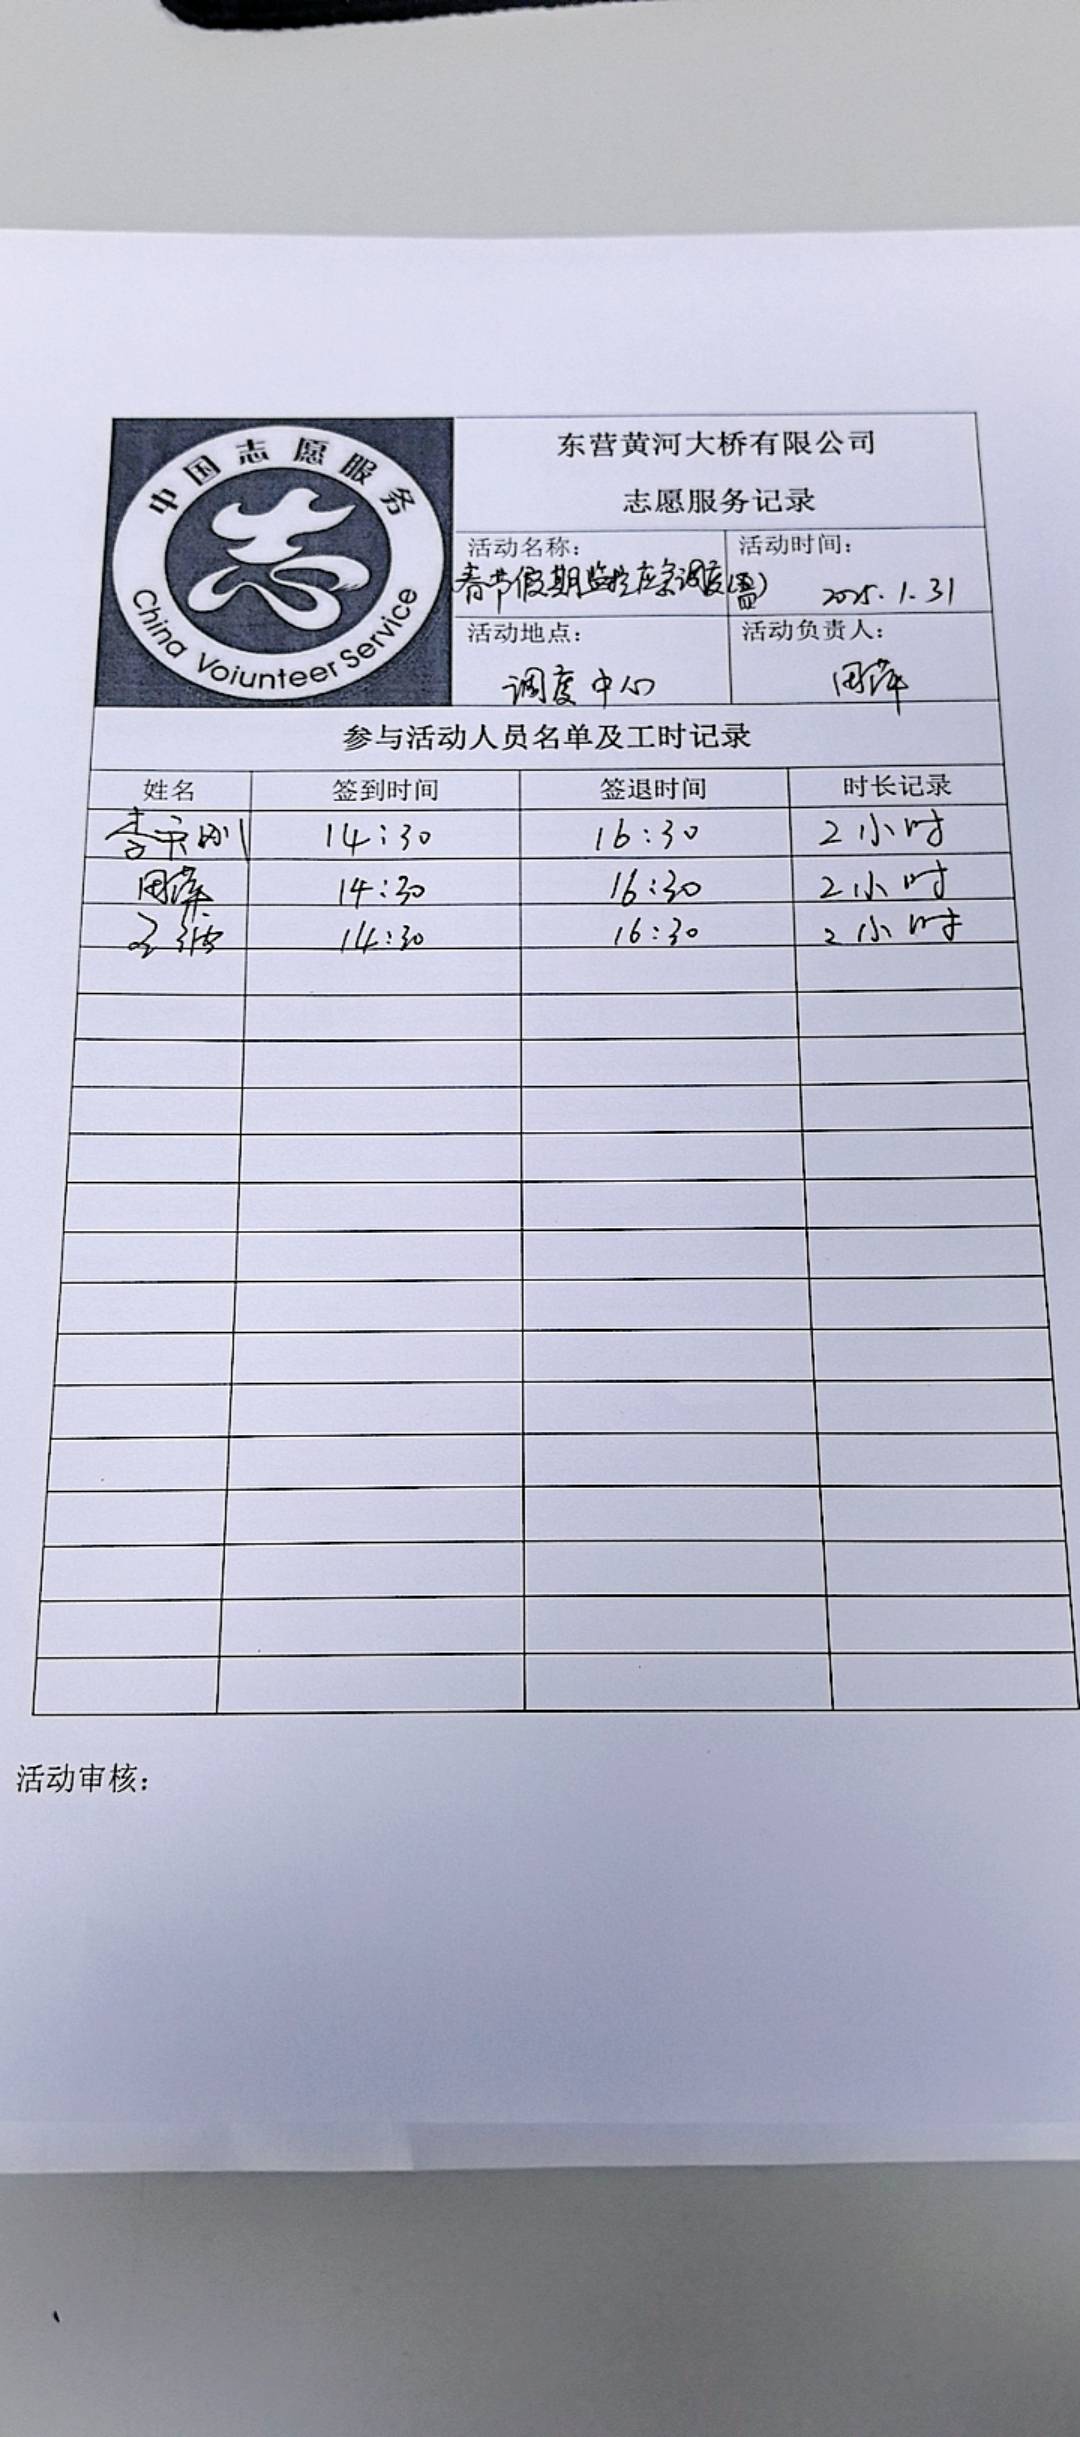 中国志愿服务
China Voiunteer Service
东营黄河大桥有限公司
志愿服务记录
活动名称：
春节假期监控应急调度(四)
活动时间：
2025.1.31
活动地点：
调度中心
活动负责人：
田萍
参与活动人员名单及工时记录
姓名 签到时间 签退时间 时长记录
14:30 16:30 2小时
田萍 14:30 16:30 2小时
14:30 16:30 2小时
活动审核：